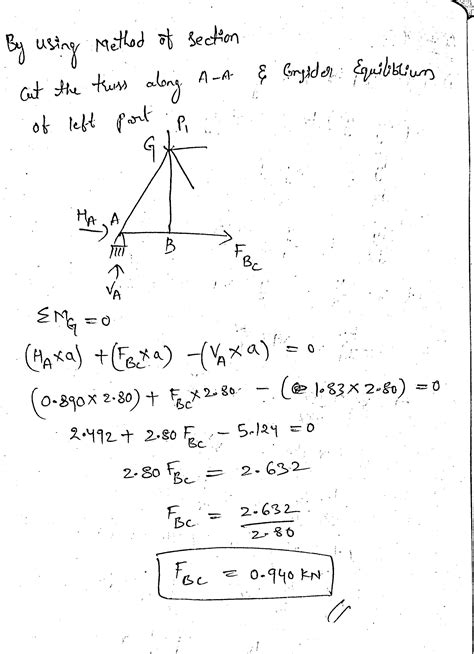 By using Method of section
Cut the truss along A-A & Consider Equilibrium
of left part
P1
G
HA A
B
FBC
VA
ΣMG = 0
(HA×a) + (FBC×a) - (VA×a) = 0
(0.890×2.80) + FBC×2.80 - (1.83×2.80) = 0
2.492 + 2.80 FBC - 5.124 = 0
2.80 FBC = 2.632
FBC = 2.632
2.80
FBC = 0.940 KN